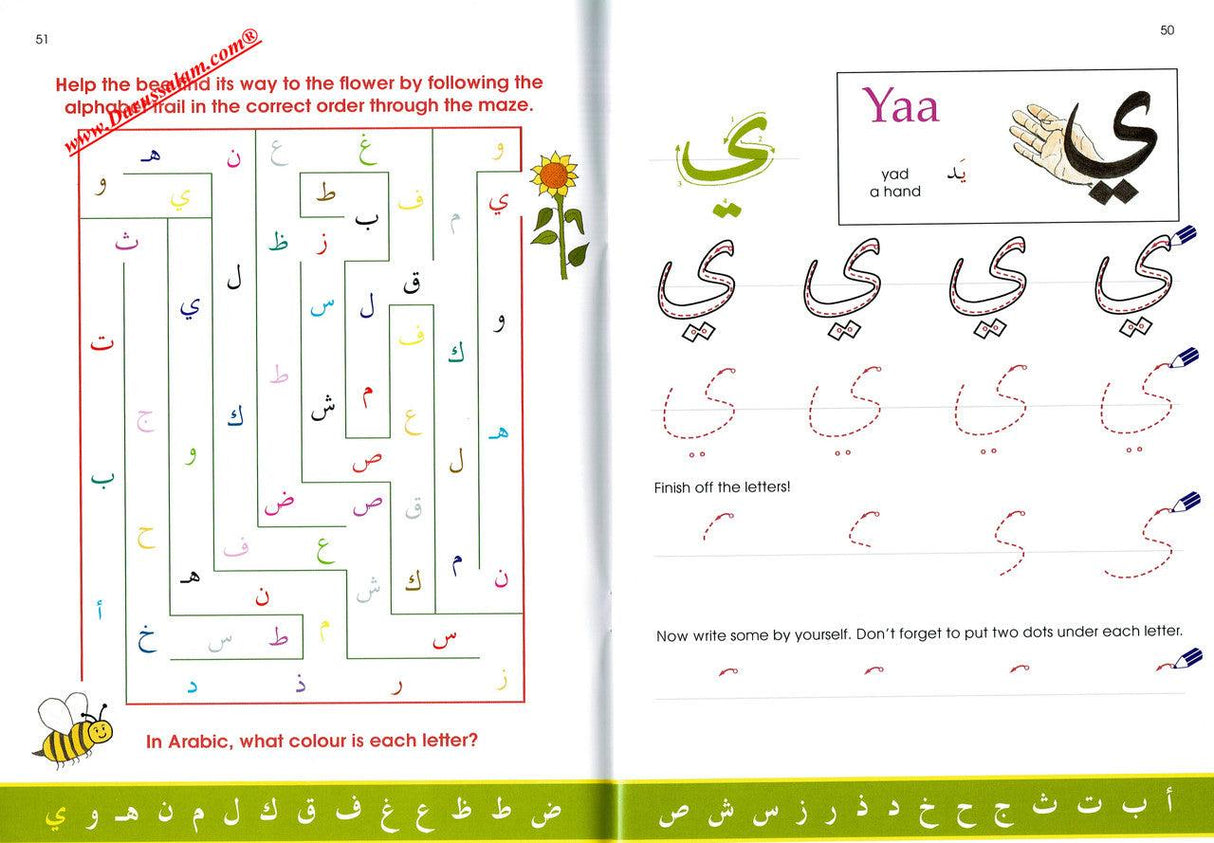 50
Yaa
ي
ي
yad
يَد
a hand
ي ي ي ي
ي ي ي ي
Finish off the letters!
Now write some by yourself. Don't forget to put two dots under each letter.
أ ب ت ث ج ح خ د ذ ر ز س ش ص
51
www.Darussalam.com®
Help the bee find its way to the flower by following the
alphabet trail in the correct order through the maze.
و غ ع ن هـ
ي ف ط ي و
م ب
ز ظ ث
ق ل
و ل س ي
ك ف ت
ط
ع م ش ك ج
هـ و
ل ص ب
ق ص ض
ع ف ح
ن م ك ش هـ
ن أ
س م ط س خ
ز ر ذ د
In Arabic, what colour is each letter?
ض ط ظ ع غ ف ق ك ل م ن هـ و ي